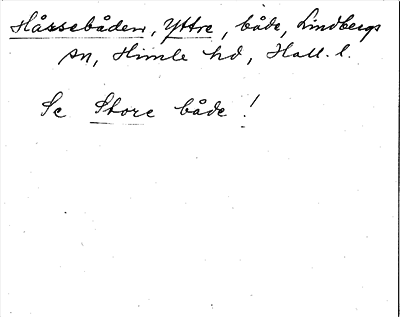 Håssebåden, Yttre, både, Lindbergs
sn, Himle hd, Hall. l.
Se Store både!